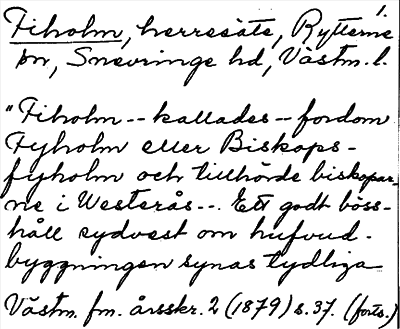 1.
Fiholm, herresäte, Rytterne
sn, Snevringe hd, Västm. l.
"Fiholm -- kallades -- fordom
Fyholm eller Biskops-
fyholm och tillhörde biskopar-
ne i Westerås --. Ett godt böss-
håll sydvest om hufvud-
byggningen synas tydliga
Västm. fm. årsskr. 2 (1879) s. 37. (forts.)